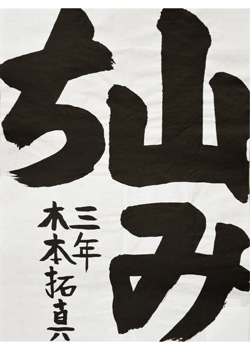 山み
ち
三年
木本拓真